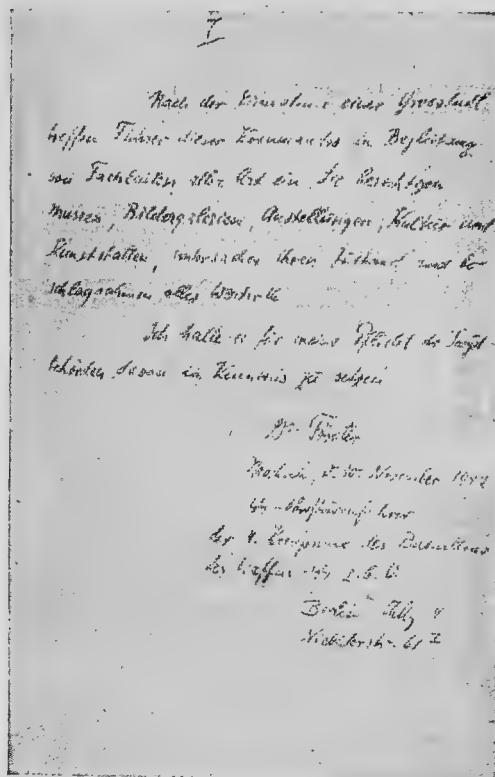 7
Nach der Einnahme einer Grosstadt
treffen Führer dieser Kommandos in Begleitung
von Fachleuten aller Art ein. Sie besichtigen
Museen, Bildergalerien, Austellungen, Kultur und
Kunststätten, ihren Zustand und be-
schlagnahmen alles Wertvolle
Ich halte es für meine Pflicht die
behörden davon in Kenntnis zu setzen
Dr. Förster
November 1942
der 4. Kompanie des
der Waffen z.b.V.
Berlin
61 II